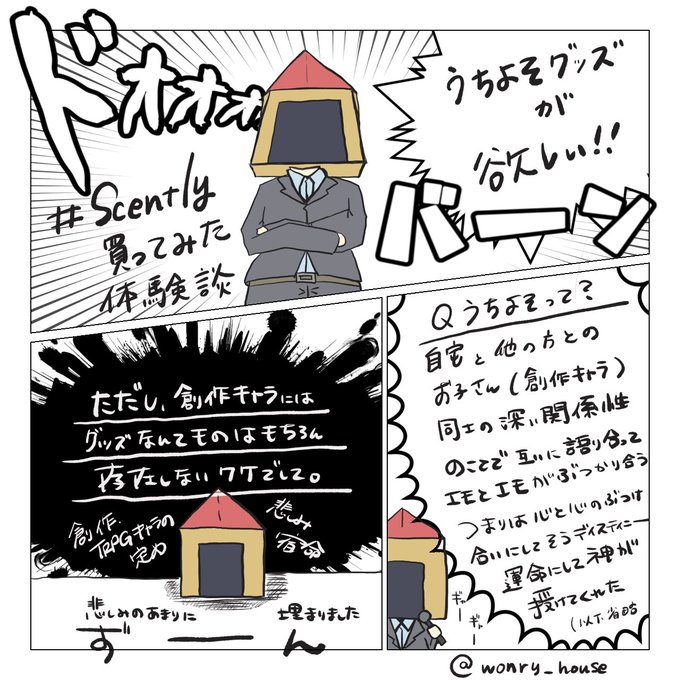 ドォォォォ
うちよそグッズ
が
欲しい!!
バーーン
#Scently
買ってみた
体験談
Qうちよそって?
自宅と他の方との
お子さん(創作キャラ)
同士の深い関係性
のことで互いに語り合って
エモとエモがぶつかり合う
つまりは心と心のぶつけ
合いにしてそうディスティニー
運命にして神が
授けてくれた
(以下省略
ギャー
ギャー
ただし、創作キャラには
グッズなんてものはもちろん
存在しないワケでして。
創作、
TRPGキャラの
定め
悲しみ
宿命
悲しみのあまりに
埋まりました
ずーーん
@wonry_house